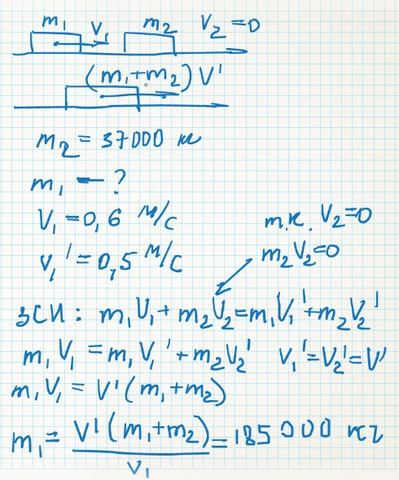 m₁ V₁ m₂ V₂=0
(m₁+m₂) V'
m₂ = 37000 кг
m₁ — ?
V₁ = 0,6 м/с
т.к. V₂=0
V₁' = 0,5 м/с
m₂V₂=0
ЗСИ: m₁V₁ + m₂V₂ = m₁V₁' + m₂V₂'
m₁V₁ = m₁V₁' + m₂V₂' V₁'=V₂'=V'
m₁V₁ = V'(m₁+m₂)
m₁ = V'(m₁+m₂) / V₁ = 185000 кг